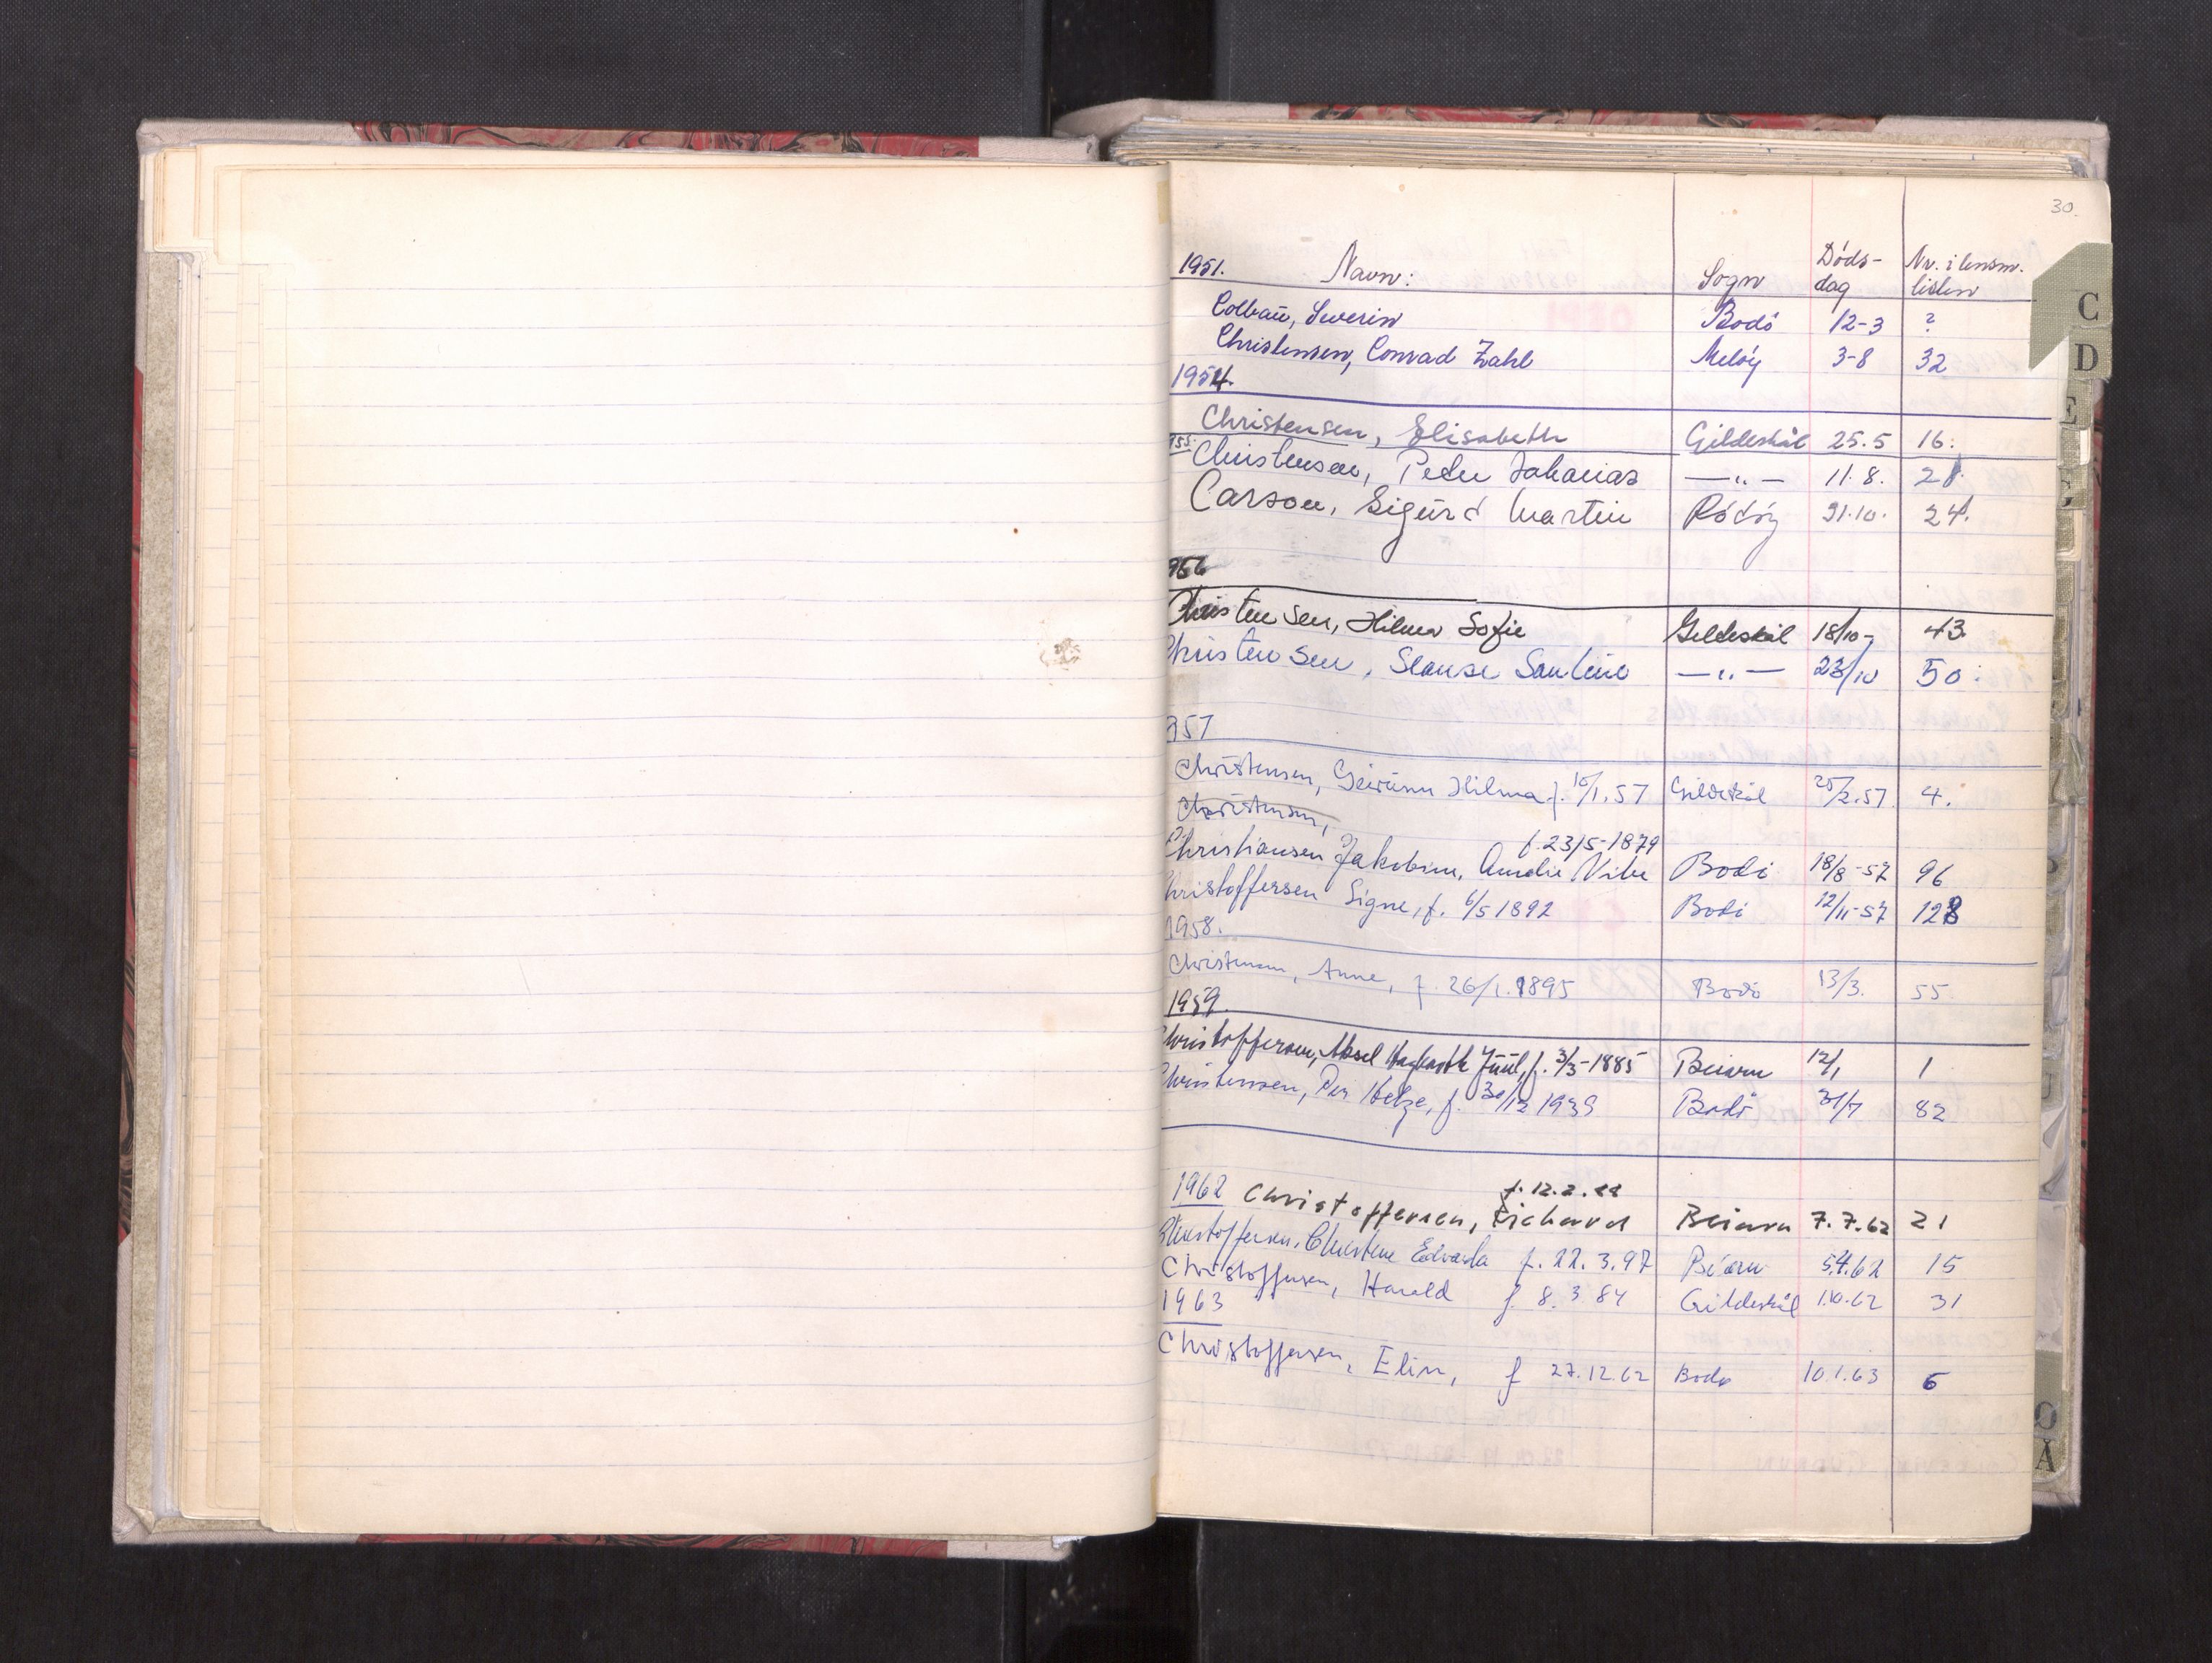 30.
1951. Navn: Sogn Døds- dag Nr. i lensm. listen
Colbaũ, Severin Bodø 12-3 ?
Christensen, Conrad Zahl Meløy 3-8 32
1954.
Christensen, Elisabeth Gildeskål 25.5 16.
955.
Christensen, Peder Zakarias —"— 11.8. 21.
Carson, Sigũrd Martin Rødøy 31.10. 24.
956
Christensen, Hilma Sofie Gildeskål 18/10- 43.
Christensen, —"— 23/10 50.
957
Christensen, Hilma f. 15/1.57 Gildeskål 25/2.57. 4.
Christensen,
f. 23/5-1879
Christiansen Jakobine, Amalie Bodø 18/8-57 96
Christoffersen Signe, f. 6/5 1892 Bodø 12/11-57 128
1958.
Christensen, Anne, f. 26/1.1895 Bodø 13/3. 55
1959.
Christoffersen, Aksel Jũũl, f. 3/3-1885 Beiarn 12/1 1
Christensen, Per Helge, f. 30/12 1939 Bodø 31/7 82
f. 12.2.88
1962 Christoffersen, Richard Beiarn 7.7.62 21
Christoffersen, Christine Edvarda f. 22.3.97 Beiarn 5.4.62 15
Christoffersen, Harald f. 8.3.84 Gildeskål 1.10.62 31
1963
Christoffersen, Elin, f 27.12.62 Bodø 10.1.63 6
C
D
E
O
Å